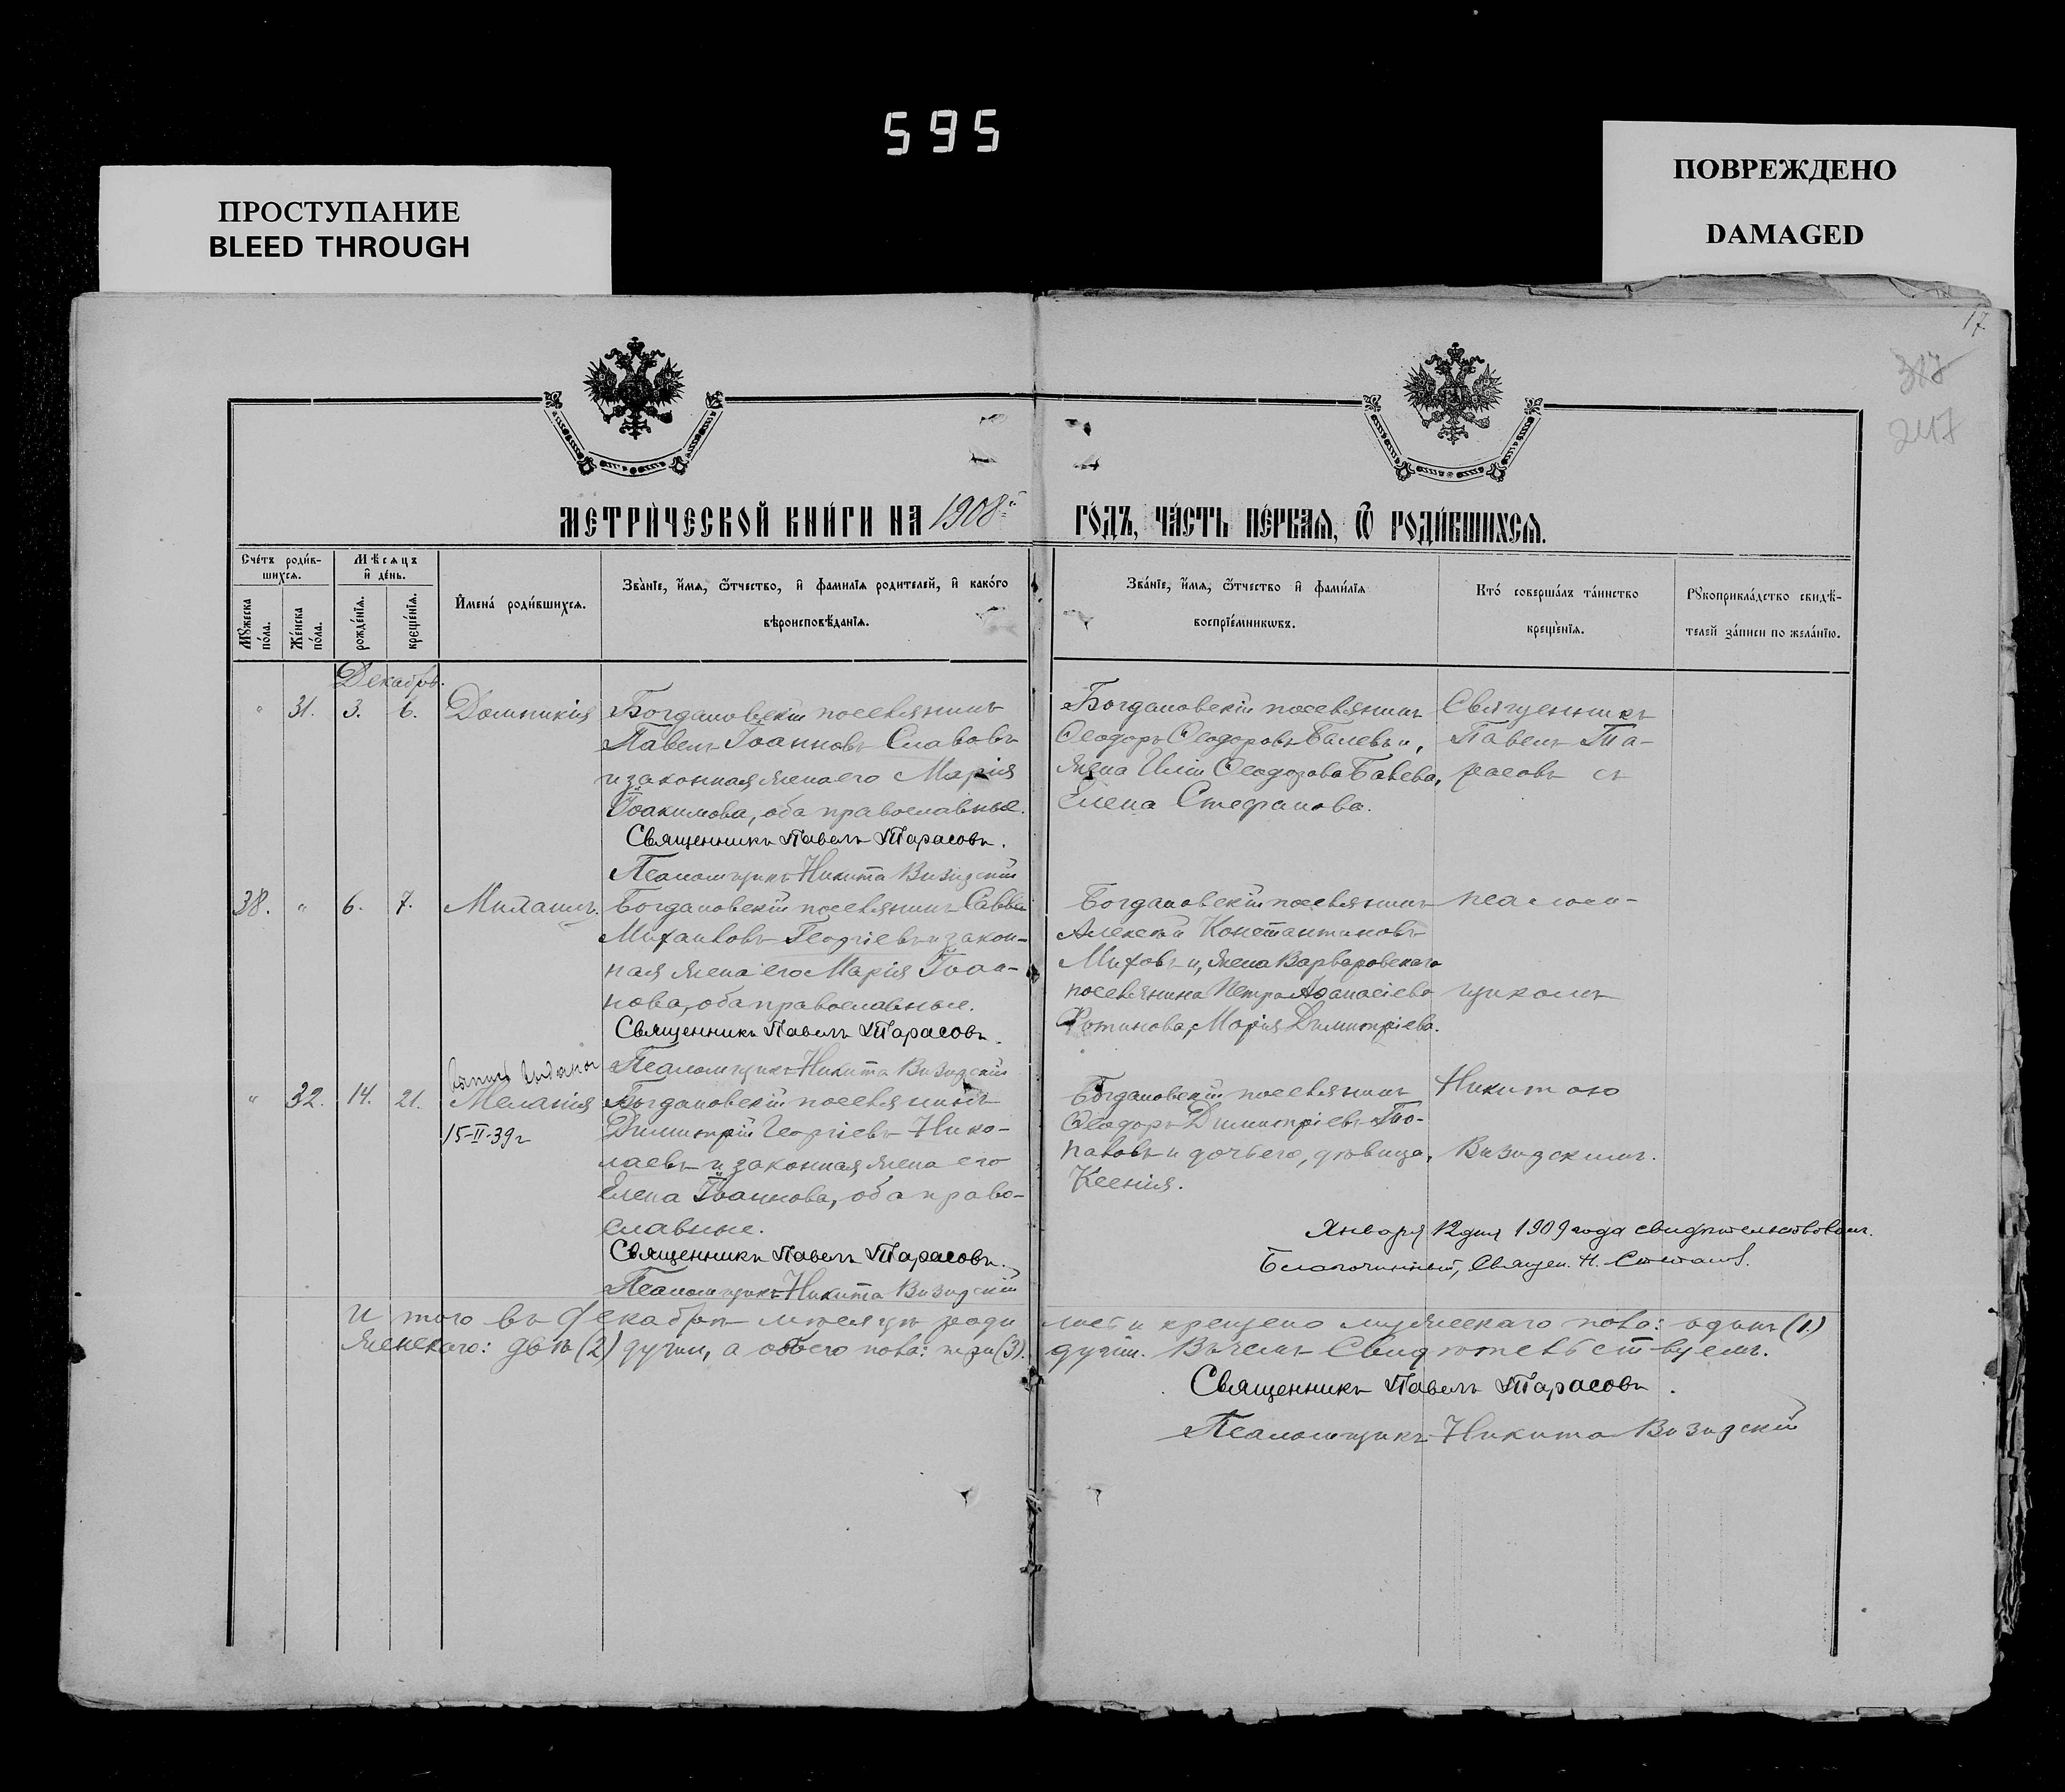 595
ПРОСТУПАНИЕ
BLEED THROUGH
ПОВРЕЖДЕНО
DAMAGED
17
317
217
МЕТРИ́ЧЕСКОЙ КНИ́ГИ НА 1908й ГО́ДЪ, ЧА́СТЬ ПЕ́РВАѦ, Ѿ РОДИ́ВШИХСѦ.
Сче́тъ роди́в-
шихсѧ.
Мѣсѧцъ
и҆ де́нь.
Мꙋжеска
по́ла.
Же́нска
по́ла.
рожде́нїѧ.
креще́нїѧ.
И҆мена́ роди́вшихсѧ.
Зва́нїе, и҆́мѧ, ѻ҆́тчество, и҆ фами́лїѧ роди́телей, и҆ како́го
вѣроисповѣ́данїѧ.
Зва́нїе, и҆́мѧ, ѻ҆́тчество и҆ фами́лїѧ
воспрїе́мникѡвъ.
Кто́ соверша́лъ та́инство
креще́нїѧ.
Рꙋкоприкла́дство свидѣ́-
телей за́писи по жела́нїю.
Декабрь.
" 31. 3. 6. Домникія
Богдановскій поселянинъ
Павелъ Іоанновъ Славовъ
и законная жена его Марія
Іоакимова, оба православные.
Священникъ Павелъ Тарасовъ.
Псаломщикъ Никита Визидскій
Богдановскій поселянинъ
Ѳеодоръ Ѳеодоровъ Балевъ и,
жена Иліи Ѳеодорова Балева,
Елена Стефанова.
Священникъ
Павелъ Та-
расовъ съ
38. " 6. 7. Михаилъ.
Богдановскій поселянинъ Савва
Михаиловъ Георгіевъ и закон-
ная жена его Марія Іоан-
нова, оба православные.
Священникъ Павелъ Тарасовъ.
Псаломщикъ Никита Визидскій
Богдановскій поселянинъ
Алексѣй Константиновъ
Миховъ и, жена Варваровскаго
поселянина Петра Аѳанасіева
Фотинова, Марія Димитріева.
псалом-
щикомъ
" 32. 14. 21. Меланія
15-II-39г
Богдановскій поселянинъ
Димитрій Георгіевъ Нико-
лаевъ и законная жена его
Елена Іоаннова, оба право-
славные.
Священникъ Павелъ Тарасовъ.
Псаломщикъ Никита Визидскій
Богдановскій поселянинъ
Ѳеодоръ Димитріевъ То-
паловъ и дочь его, дѣвица,
Ксенія.
Никитою
Визидскимъ.
Января 12 дня 1909 года свидѣтельствовалъ.
Благочинный, Священ. Н.
И того въ декабрѣ мѣсяцѣ роди лось и крещено мужескаго пола: одинъ (1.)
женскаго: двѣ (2) души, а обоего пола: три (3). души. Въ чемъ Свидѣтельствуемъ.
Священникъ Павелъ Тарасовъ.
Псаломщикъ Никита Визидскій